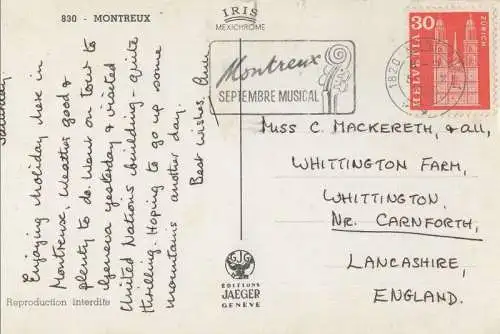 830 - MONTREUX
IRIS
MEXICHROME
Montreux
SEPTEMBRE MUSICAL
1820
30
HELVETIA
ZÜRICH
Saturday
Enjoying holiday here in
Montreux, weather good &
plenty to do. Went on tour to
Geneva yesterday & visited
United Nations building - quite
thrilling. Hoping to go up some
mountains another day.
Best wishes,
MISS C. MACKERETH, & all,
WHITTINGTON FARM,
WHITTINGTON,
NR. CARNFORTH,
LANCASHIRE,
ENGLAND.
EDITIONS
JAEGER
GENEVE
Reproduction interdite